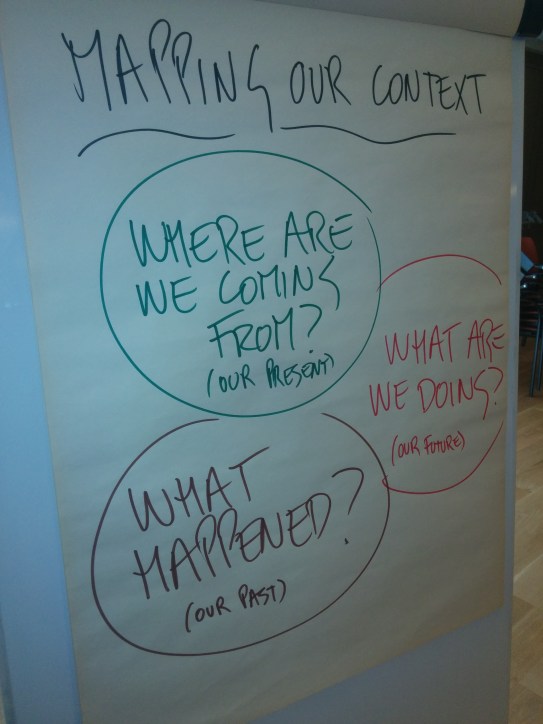 MAPPING OUR CONTEXT
WHERE ARE
WE COMING
FROM?
(OUR PRESENT)
WHAT ARE
WE DOING?
(OUR FUTURE)
WHAT
HAPPENED?
(OUR PAST)